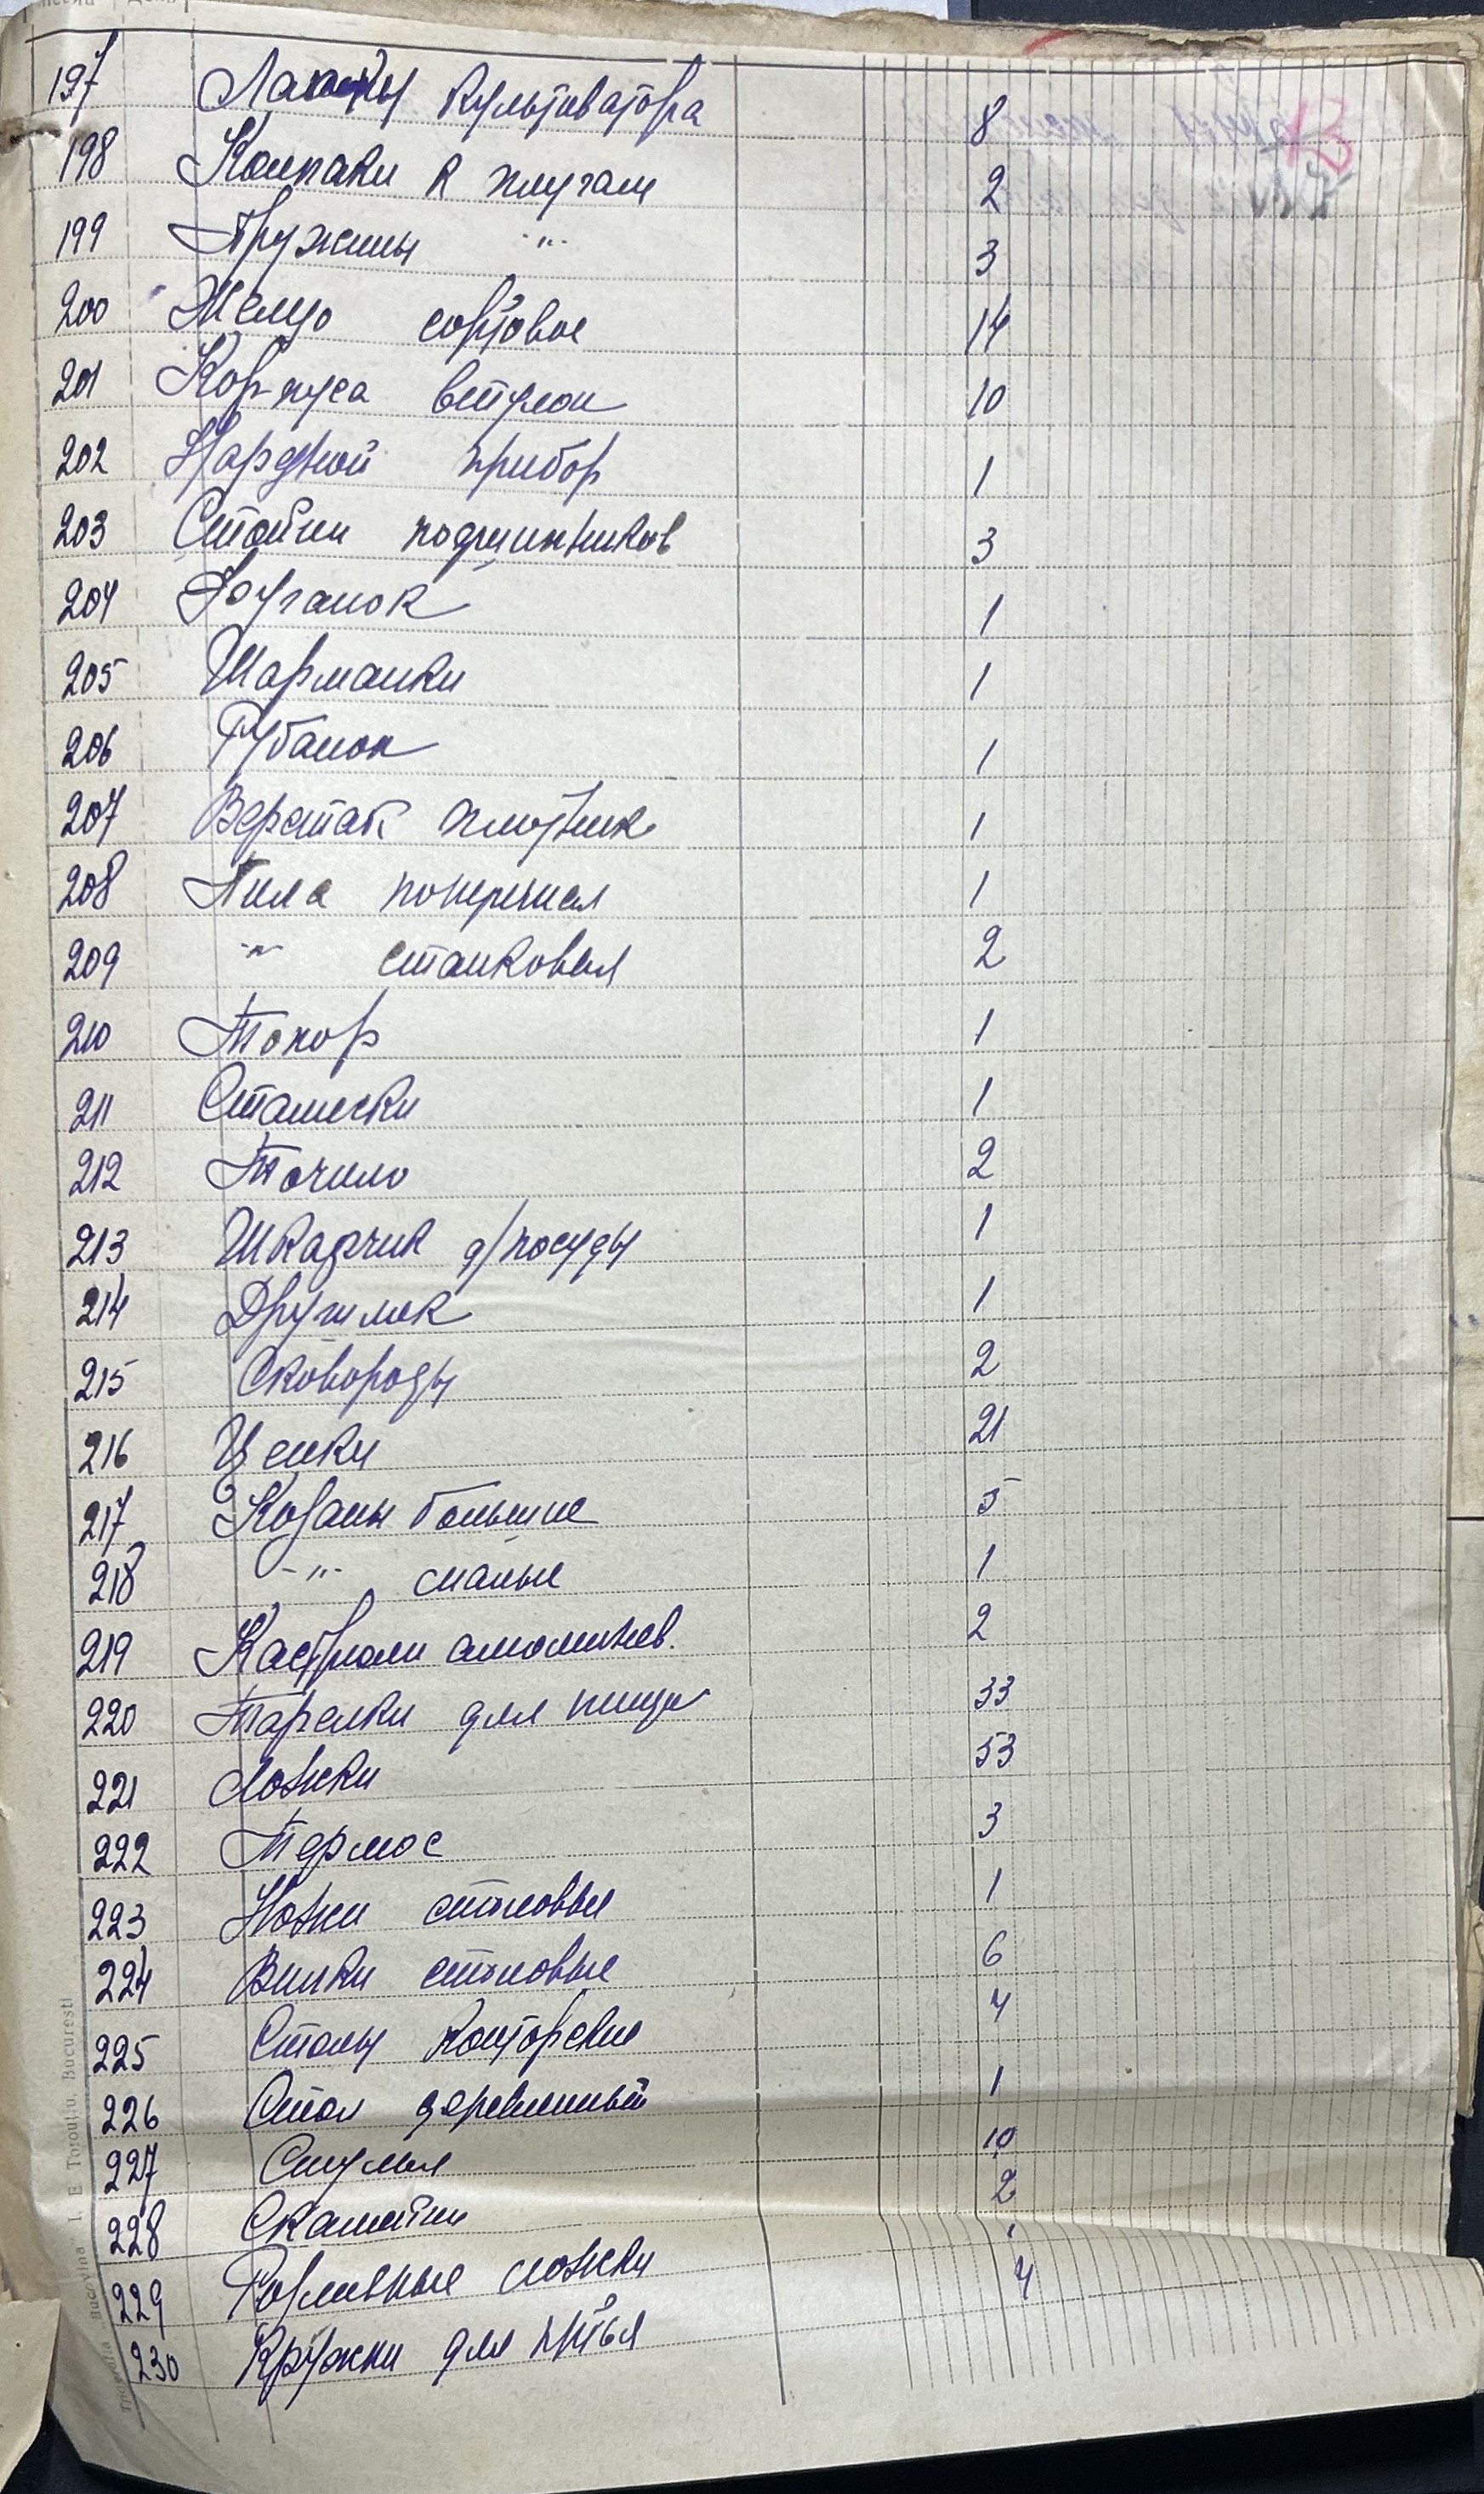 197 Лапки культиватора 8
198 Колпаки к плугам 2
199 Пружины -"- 3
200 Железо сортовое 14
201 Корпуса втулок 10
202 прибор 1
203 Стойки подшипников 3
204 Фуганок 1
205 Шарманки 1
206 Рубанок 1
207 Верстак плотник. 1
208 Пила поперечная 1
209 -"- станковая 2
210 Топор 1
211 Стамески 1
212 Точило 2
213 Шкафчик д/посуды 1
214 Друшляк 1
215 Сковороды 2
216 21
217 Казаны большие 5
218 -"- малые 1
219 Кастрюли алюминев. 2
220 Тарелки для пищи 33
221 Ложки 53
222 Термос 3
223 Ножи столовые 1
224 Вилки столовые 6
225 Столы конторские 4
226 Стол деревянный 1
227 Стулья 10
228 Скамейки 2
229 Разливные ложки
230 Кружки для питья 4
Bucovina I. E. Toroutiu. Bucuresti